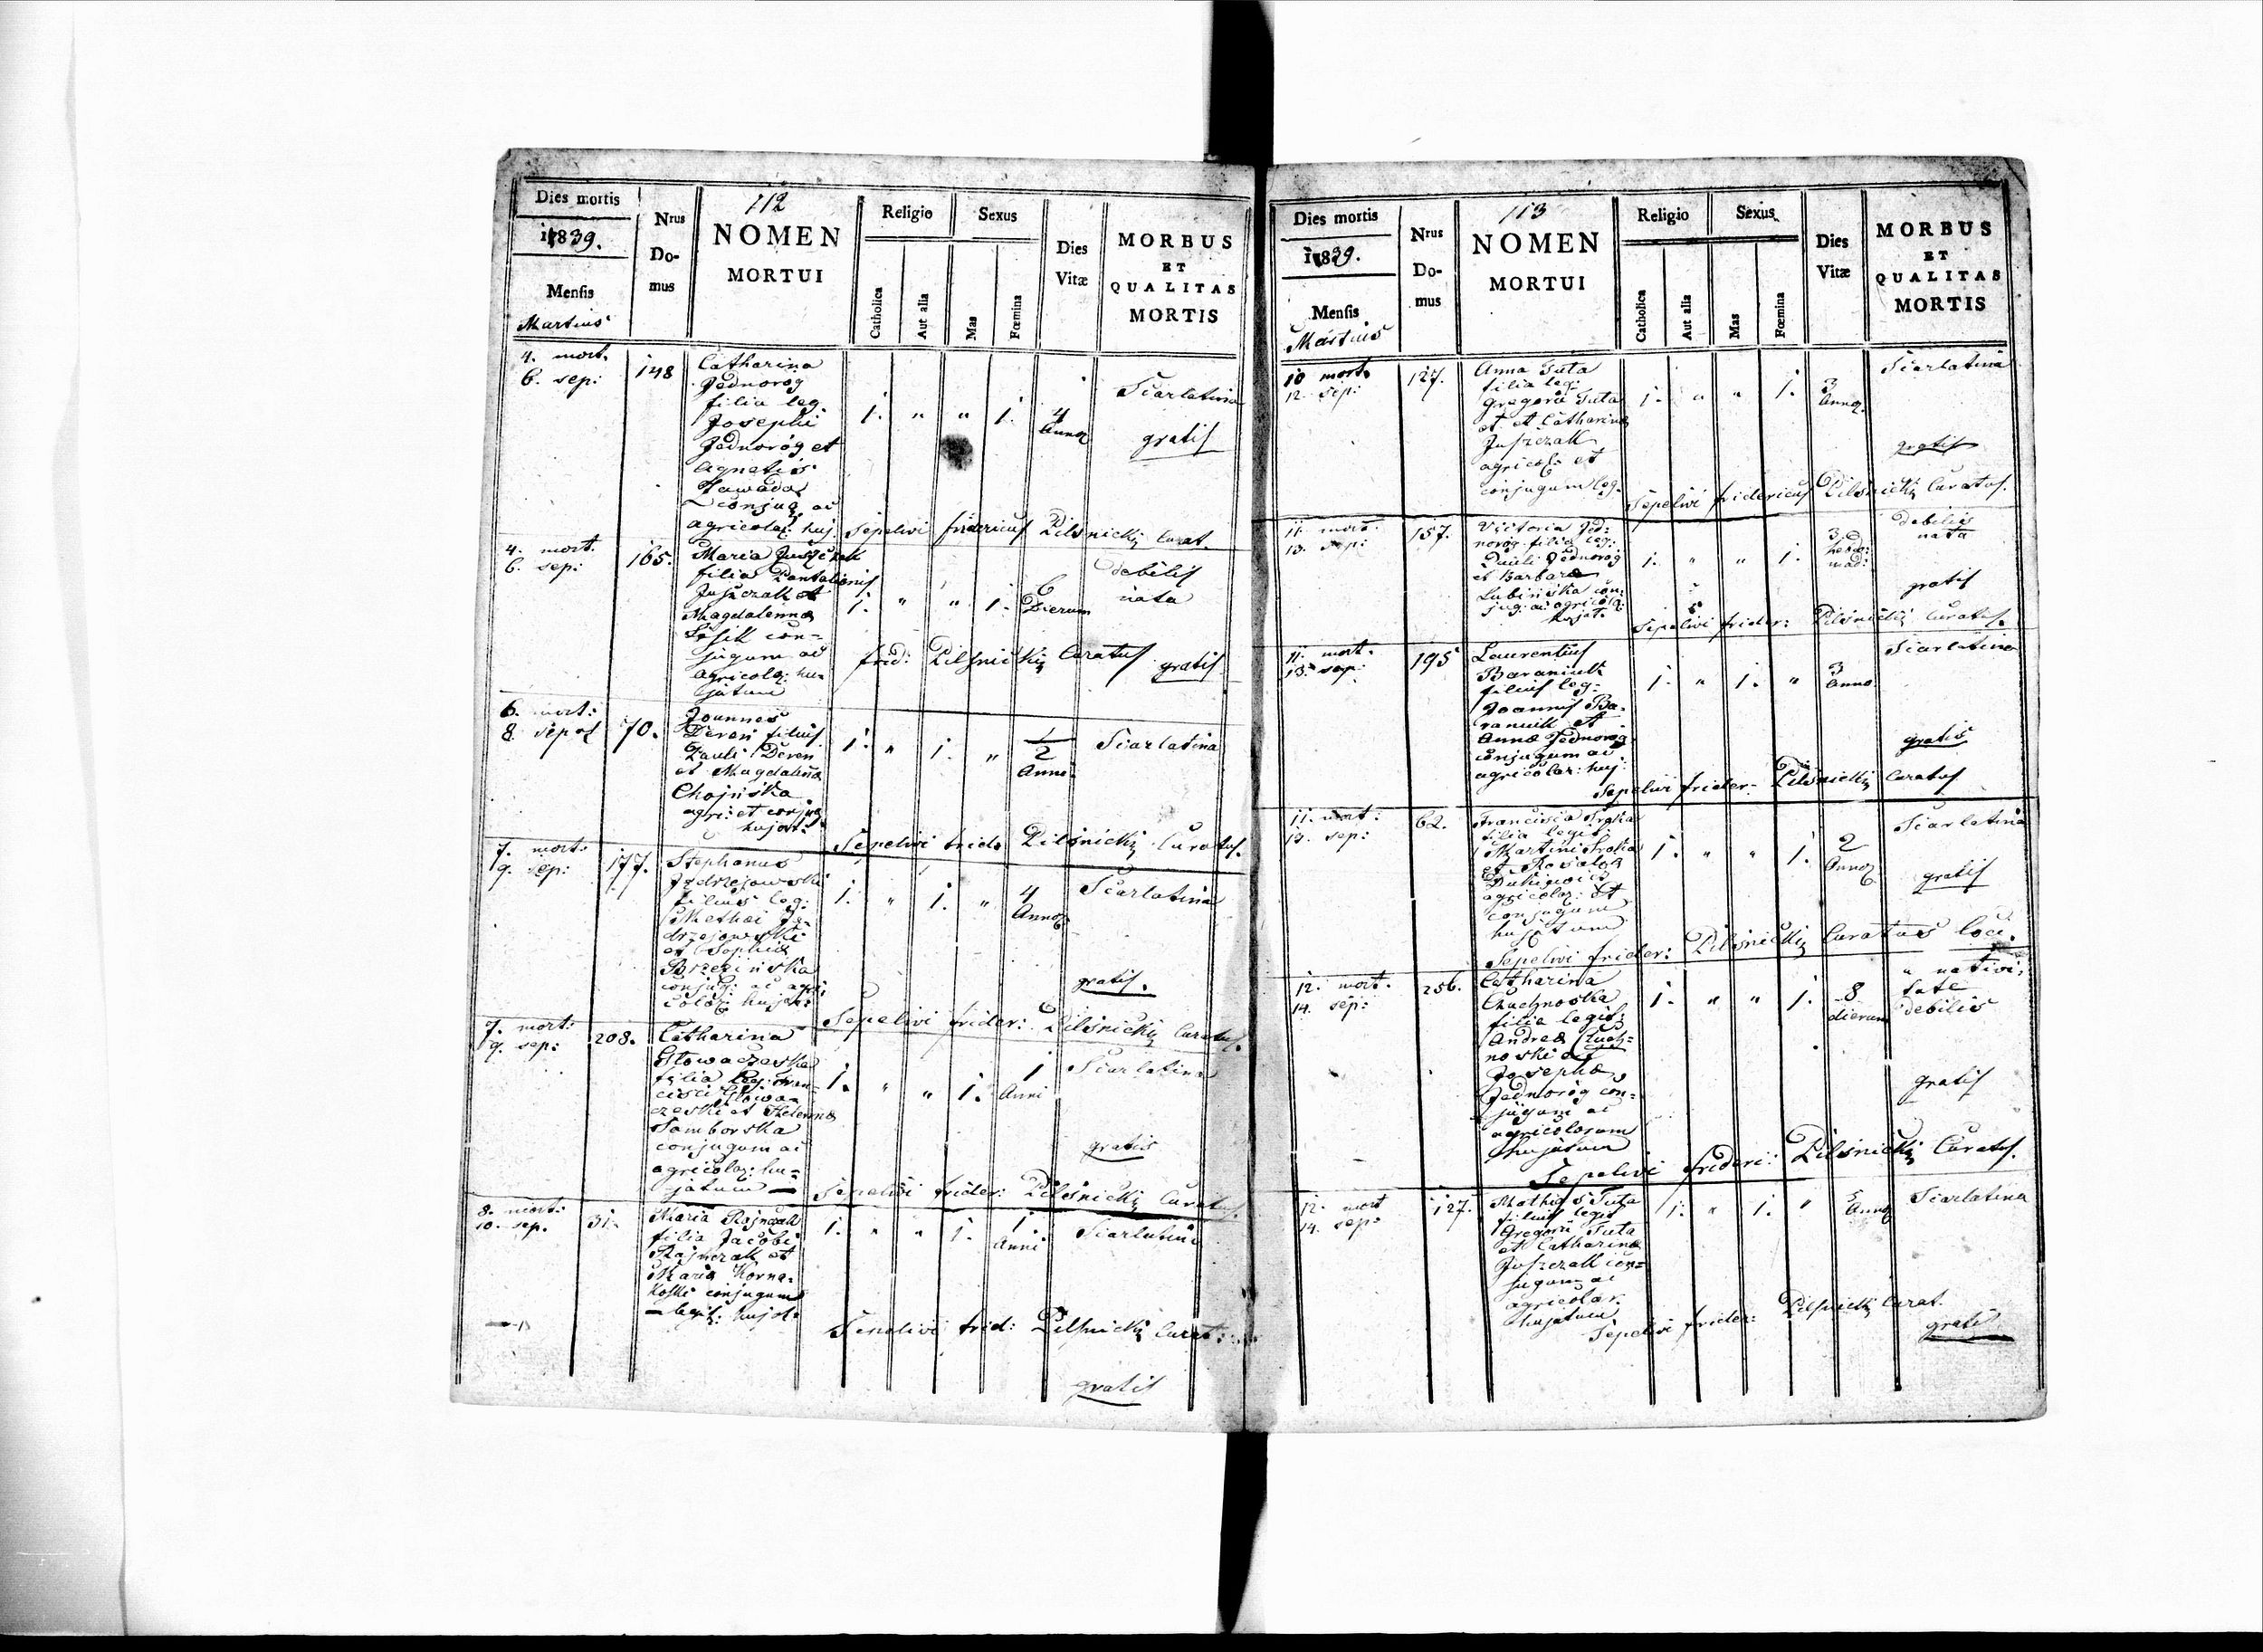 Dies mortis
1839.
Mensis
Martius
Nrus
Do-
mus
112
NOMEN
MORTUI
Religio
Catholica
Aut alia
Sexus
Mas
Fœmina
Dies
Vitæ
MORBUS
ET
QUALITAS
MORTIS
4. mort.
6. sep:
148
Catharina
Jednorog
filia leg
Josephi
Jednoróg et
Agnetis
Zawada
conjug. ac
agricolar: huj.
1. " " 1.
4
Annor
Scarlatina
gratis
Sepelivi fridericus Pilsnicki Curat.
4. mort.
6. sep:
165.
Maria Juszczak
filia Pantalionis
Juszczak et
Magdalenna
con=
jugum ac
agricolar: hu=
jatum
1. " " 1.
6
Dierum
debilis
nata
frid: Pilsnicki Curatus gratis
6. mort:
8. sepet
70.
Joannes
Deren filius
Pauli Deren
et Magdalena
Chojńska
agri: et conjug
hujat:
1. " 1. "
1/2
Anni
Scarlatina
Sepelivi frid: Pilsnicki Curatus.
7. mort:
9. sep:
177.
Stephanus
Jędrzejowski
filius leg:
Mathei Ję=
drzejowski
et Sophia
Brzezińska
conjug: ac agri:
colar: hujat:
1. " 1. "
4
Annor
Scarlatina
gratis.
Sepelivi frider: Pilsnicki Curatus.
7. mort:
9. sep:
208.
Catharina
Głowaczeska
filia leg: Fran=
cisci Głowa=
czeski et Helenna
Samborska
conjugum ac
agricolar: hu=
jatum
1. " " 1.
1
Anni
Scarlatina
gratis
Sepelivi frider: Pilsnicki Curatus.
8. mort:
10. sep.
31.
Maria Rajnczak
filia Jacobi
Rajnczak et
Maria Korna=
koski conjugum
legit: hujat:
1. " " 1.
1.
Anni
Scarlatina
Sepelivi frid: Pilsnicki Curat:
gratis
Dies mortis
1839.
Mensis
Martius
Nrus
Do-
mus
113
NOMEN
MORTUI
Religio
Catholica
Aut alia
Sexus
Mas
Fœmina
Dies
Vitæ
MORBUS
ET
QUALITAS
MORTIS
10 mort.
12. sep:
127.
Anna Tuta
filia leg:
Gregorii Tuta
et et Catharina
Juszczak
agricol: et
conjugum leg.
1. " " 1.
3
Annor.
Scarlatina
gratis
Sepelivi fridericus Pilsnicki Curatus.
11. mort:
13. sep:
157.
Victoria Jed:
norog filia leg:
Pauli Jednorog
et Barbara
Lubińska con:
jug: ac agricol:
hujat.
1. " " 1.
3
hebdo:
mad:
debilis
nata
gratis
Sepelivi frider: Pilsnicki Curatus.
11. mort.
13. sep:
195
Laurentius
Baraniuk
filius leg:
Joannis Ba=
ranuik et
Anna Jednorog
conjugum ac
agricolar: huj:
1. " 1. "
3
Anno.
Scarlatina
gratis
Sepelivi frider- Pilsnicki Curatus
11. mort:
13. sep:
62.
Francisca Sroka
filia legit:
Martini Sroka
et Rosalia
agricolar: et
conjugum
hujatum
1. " " 1.
2
Annor
Scarlatina
gratis
Sepelivi frider: Pilsnicki Curatus loci.
12. mort.
14. sep:
256.
Catharina
Chuchnoska
filia legit:
Andrea Chuch=
noski et
Josepha
Jednoróg con=
jugum ac
agricolarum
hujatum
1. " " 1.
8
dierum
a nativi:
tate
debilis
gratis
Sepelivi frideri: Pilsnicki Curatus.
12. mort
14. sep:
127.
Mathias Tuta
filius legit
Gregorii Tuta
et Catharina
Juszczak con=
jugum ac
agricolar.
hujatum
1. " 1. "
5
Annor
Scarlatina
Sepelivi frider: Pilsnicki Curat.
gratis